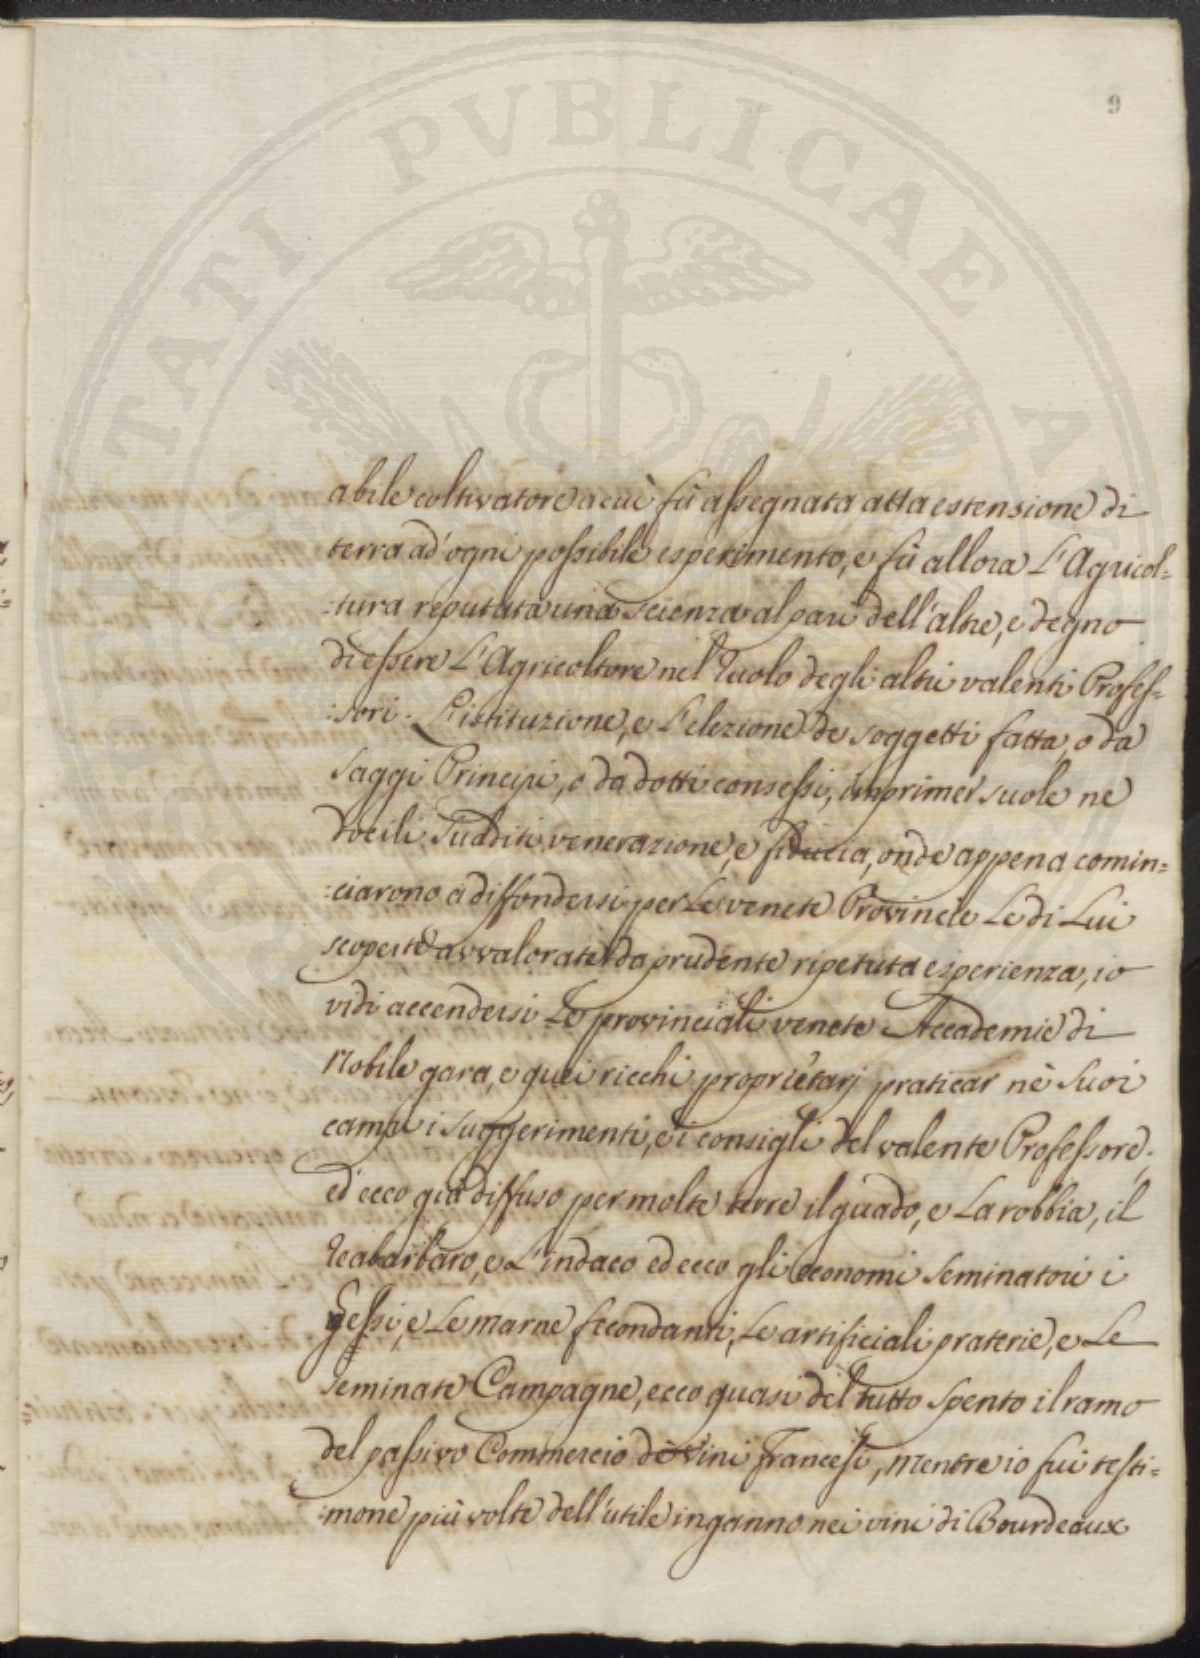 PVBLICAE
TATI
9
abile coltivatore a cui fù assegnata atta estensione di
terra ad'ogni possibile esperimento, e fù allora L'Agricol=
:tura reputata una scienza al pari dell'altre, e degno
di essere L'Agricoltore nel Ruolo degli altri valenti Profes=
:sori. L'istituzione, e L'elezione de soggetti fatta, o da
saggi Principi, o da dotti consessi, imprimer suole ne
docili Sudditi venerazione, e fiducia, onde appena comin=
:ciarono a diffondersi per Le venete Provincie Le di Lui
scoperte avvalorate da prudente ripetuta esperienza, io
vidi accendersi Le provinciali venete Accademie di
Nobile gara, e quei ricchi proprietarj praticar nè suoi
campi i suggerimenti, e i consigli del valente Professore;
ed ecco già diffuso per molte terre il guado, e La robbia, il
Reabarbaro, e L'indaco ed ecco gli economi seminatori i
Gessi, e Le marne fecondanti, Le artificiali praterie, e Le
seminate Campagne, ecco quasi del tutto spento il ramo
del passivo Commercio di vini Francesi, mentre io fui testi=
:mone più volte dell'utile inganno nei vini di Bourdeaux